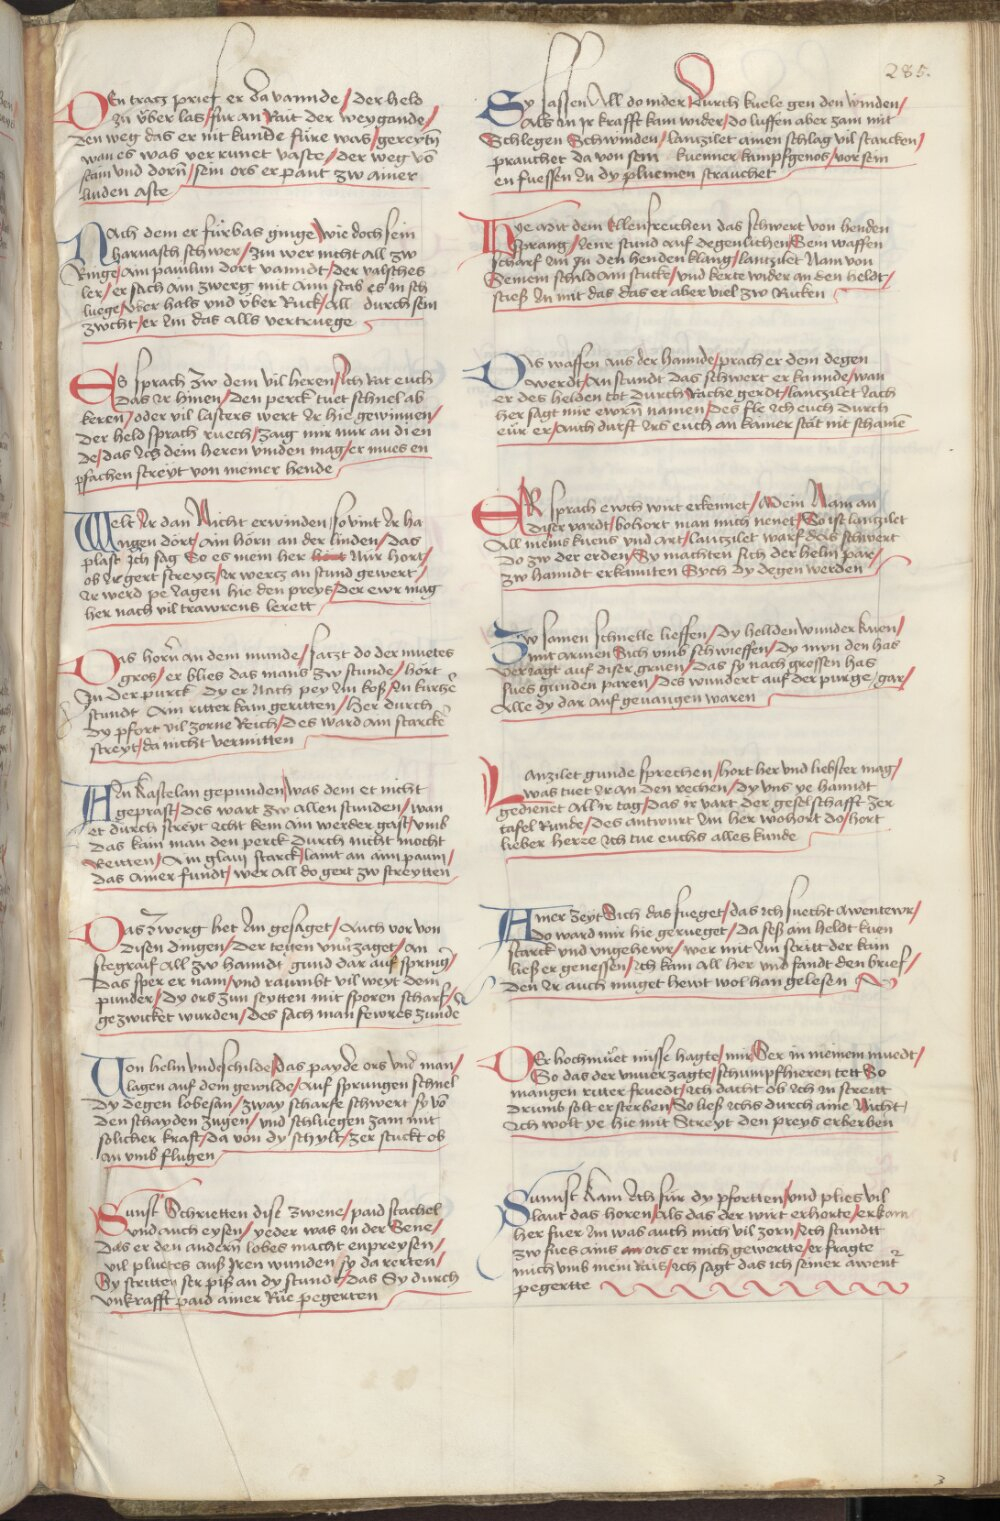 285.
DEn tracz prief er da vannde / der held
zu v̈ber las / für an Rait der weygande /
den weg das er mit kunde füre was / gereytn̄
wan es was verrunet vaste / der weg vō
stain vnd dorn̄ / sein ors er pant zw ainer
linden aste
NAch dem er fürbas ginge / wie doch sein
harnasch schwer / Im wer nicht all zw
Ringe / am paulun dort vanndt / der valsches
ler / er sach am zwerg mit aim stab es in sch
luege / vber hals vnd v̈ber Ruck / all durch sein
zwcht / er im das alls vertruege
ES sprach zw dem vil heren / Ich Rat euch
das Ir hinen / den perck tuet schnel ab
keren / oder vil lasters wert Ir hie gewinnen /
der held sprach ruech / zaig mir nur an di en
de / das Ich dem heren vinden mag / er mues en
pfachen streyt von meiner hende
WElt Ir dan Nicht erwinden / so vint Ir ha
ngen dort / ain hörn an der linden / das
plast Ich sag So es mein her Nür hort /
ob Ir gert streycz / Ir wercz an stund gewert /
Ir werd pe lagen hie den preys / der ewr mag
her nach vil trawrens lerett
DAs horn̄ an dem munde / saczt do der muetes
gros / er blies das mans zw stunde / hört
In der purck dy er Nach pey im kos / In kurcz̄e
stundt Ain ritter kam geritten / her durch
dy pfort vil zorne Reich / des ward ain starckē
streyt / da nicht vermitten
AIn kastelan gepunden / was dem et nicht
geprast / des wart zw allen stunden / wan
et durch streyt Icht kem ain werder gast / vmb
das kam man den perck durch nicht mocht
Reitten / Ain glaui starck / lamt an aim paum /
das ainer fundt / wer all do gert zw streytten
DAs zwerg het Im gesaget / Auch vor von
disen dingen / der tegen vnuzaget / an
stegraif all zw hanndt gund dar auf spring /
das sper er nam / vnd raumbt vil weyt dem
punder / dy ors zun seytten mit sporen scharf /
gezwicket wurden / des sach man fewres zunde
Von helm vnd schilde / das payde ors vnd man /
lagen auf dem gewilde / Auf sprungen schnel
dy degen lobesan / zway scharfe schwert sy vō
den schayden zugen / vnd schluegen zam mit
solicher kraft / da von dy schylt / zer stuckt ob
in vmb flugen
SUnst Schrietten dise zwene / paid stachel
vnd auch eysen / yeder was in der Sene /
das er den andern̄ lobes macht enpreysen /
vil pluetes auß Iren wunden sy da rerten /
Sy stritten ser piß an dy stund / das Sy durch
vnkrafft paid ainer Rüe pegerten
Sy sassen All do nider / durch kuele gen den winden /
Als in Ir krafft kam wider / do luffen aber zam mit
Schlegen Schwinden / lanzilet ainen schlag vil starcken /
prauchet da von sein kuenner kampfgenos / vor sein
en fuessen In dy pluemen strauchet
Hye mit dem Ellensreichen das schwert von henden
sprang / Neur stund auf degenlichen / Sein waffen
scharf Im zu den henden klang / lantzilet Nam von
Seinem schild am stucke / vnd kerte wider an den heldt /
stieß In mit das das er aber viel zw Rucken
DAs waffen aus der hannde / prach er dem degen
werdt / An stundt das schwert er kannde / wan
er des helden tot durch Rache gerdt / lantzilet sach
her sagt mir ewrn̄ namen / des fle Ich euch durch
eür er / Auch durft Irs euch an kainer stat nit schamē
ER sprach ewch wirt erkennet / Mein Nam an
diser vardt / bohort man mich nenet / So ist lantzilet
All meins kuens vnd art / lantzilet warf das schwert
do zw der erden / Sy machten sich der helm par /
zw hanndt erkannten Sych dy degen werden
Zw samen schnelle lieffen / dy hellden wunder kuen /
mit armen Sich vmb schwieffen / dy man den has
versagt auf diser gruen / das sy nach grossen has
sues gunden paren / des wundert auf der purge / gar /
Alle dy dar auf geuangen waren
Lanzilet gunde sprechen / hort her vnd liebster mag /
was tuet Ir an den rechen / dy vns ye hanndt
gedienet All ir tag / das Ir vart der geselschafft zer
tafel Runde / des antwurt Im her wohort do / hort
lieber herre Ich tue euchs alles kunde
AIner zeyt Sich das fueget / das ich suecht awentewr /
do ward mir hie gerueget / da seß ain heldt kuen
starck vnd vngehewr / wer mit Im stritt der kam
ließ er genessen / Ich kam all her vnd fandt den brief /
den Ir auch muget hewt wol han gelesen
DEr hochmuet misse hagte / mir / Ser in meinem muedt /
So das der vnuerzagte / schumpfhieren tett So
mangen ritter fruedt / Ich dacht ob Ich in streitt
drumb solt ersterben / So ließ Ichs durch aine Nicht /
Ich wolt ye hie mit Streyt den preys erberben
Sunst kam Ich für dy pfortten / vnd plies vil
laut das horen / Als das der wirt erhorte / er kam
her fuer Im was auch mich vil zorn / Ich stundtt
zw fues ains ors er mich gewertte / er fragte
mich vmb mein Rais / Ich sagt das ich seiner awent
pegertte
3